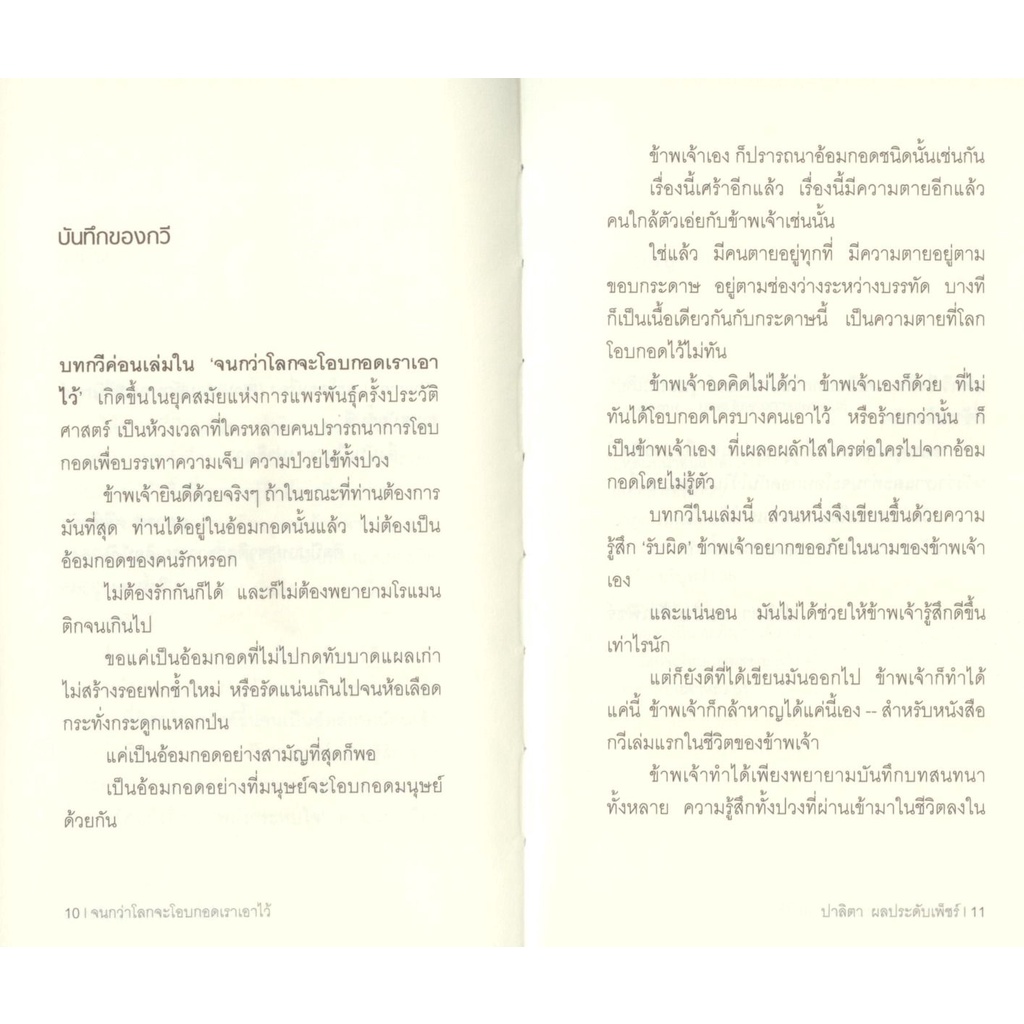 บันทึกของกวี
บทกวีค่อนเล่มใน ‘จนกว่าโลกจะโอบกอดเราเอา
ไว้’ เกิดขึ้นในยุคสมัยแห่งการแพร่พันธุ์ครั้งประวัติ
ศาสตร์ เป็นห้วงเวลาที่ใครหลายคนปรารถนาการโอบ
กอดเพื่อบรรเทาความเจ็บ ความป่วยไข้ทั้งปวง
ข้าพเจ้ายินดีด้วยจริงๆ ถ้าในขณะที่ท่านต้องการ
มันที่สุด ท่านได้อยู่ในอ้อมกอดนั้นแล้ว ไม่ต้องเป็น
อ้อมกอดของคนรักหรอก
ไม่ต้องรักกันก็ได้ และก็ไม่ต้องพยายามโรแมน
ติกจนเกินไป
ขอแค่เป็นอ้อมกอดที่ไม่ไปกดทับบาดแผลเก่า
ไม่สร้างรอยฟกช้ำใหม่ หรือรัดแน่นเกินไปจนห้อเลือด
กระทั่งกระดูกแหลกป่น
แค่เป็นอ้อมกอดอย่างสามัญที่สุดก็พอ
เป็นอ้อมกอดอย่างที่มนุษย์จะโอบกอดมนุษย์
ด้วยกัน
10 | จนกว่าโลกจะโอบกอดเราเอาไว้
ข้าพเจ้าเอง ก็ปรารถนาอ้อมกอดชนิดนั้นเช่นกัน
เรื่องนี้เศร้าอีกแล้ว เรื่องนี้มีความตายอีกแล้ว
คนใกล้ตัวเอ่ยกับข้าพเจ้าเช่นนั้น
ใช่แล้ว มีคนตายอยู่ทุกที่ มีความตายอยู่ตาม
ขอบกระดาษ อยู่ตามช่องว่างระหว่างบรรทัด บางที
ก็เป็นเนื้อเดียวกันกับกระดาษนี้ เป็นความตายที่โลก
โอบกอดไว้ไม่ทัน
ข้าพเจ้าอดคิดไม่ได้ว่า ข้าพเจ้าเองก็ด้วย ที่ไม่
ทันได้โอบกอดใครบางคนเอาไว้ หรือร้ายกว่านั้น ก็
เป็นข้าพเจ้าเอง ที่เผลอผลักไสใครต่อใครไปจากอ้อม
กอดโดยไม่รู้ตัว
บทกวีในเล่มนี้ ส่วนหนึ่งจึงเขียนขึ้นด้วยความ
รู้สึก ‘รับผิด’ ข้าพเจ้าอยากขออภัยในนามของข้าพเจ้า
เอง
และแน่นอน มันไม่ได้ช่วยให้ข้าพเจ้ารู้สึกดีขึ้น
เท่าไรนัก
แต่ก็ยังดีที่ได้เขียนมันออกไป ข้าพเจ้าก็ทำได้
แค่นี้ ข้าพเจ้าก็กล้าหาญได้แค่นี้เอง -- สำหรับหนังสือ
กวีเล่มแรกในชีวิตของข้าพเจ้า
ข้าพเจ้าทำได้เพียงพยายามบันทึกบทสนทนา
ทั้งหลาย ความรู้สึกทั้งปวงที่ผ่านเข้ามาในชีวิตลงใน
ปาลิตา ผลประดับเพ็ชร์ | 11